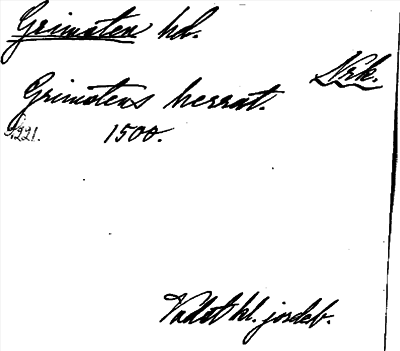 Grimsten hd.
Nrk.
Grimstens herrat.
s. 221. 1500.
Vadst kl. jordeb.